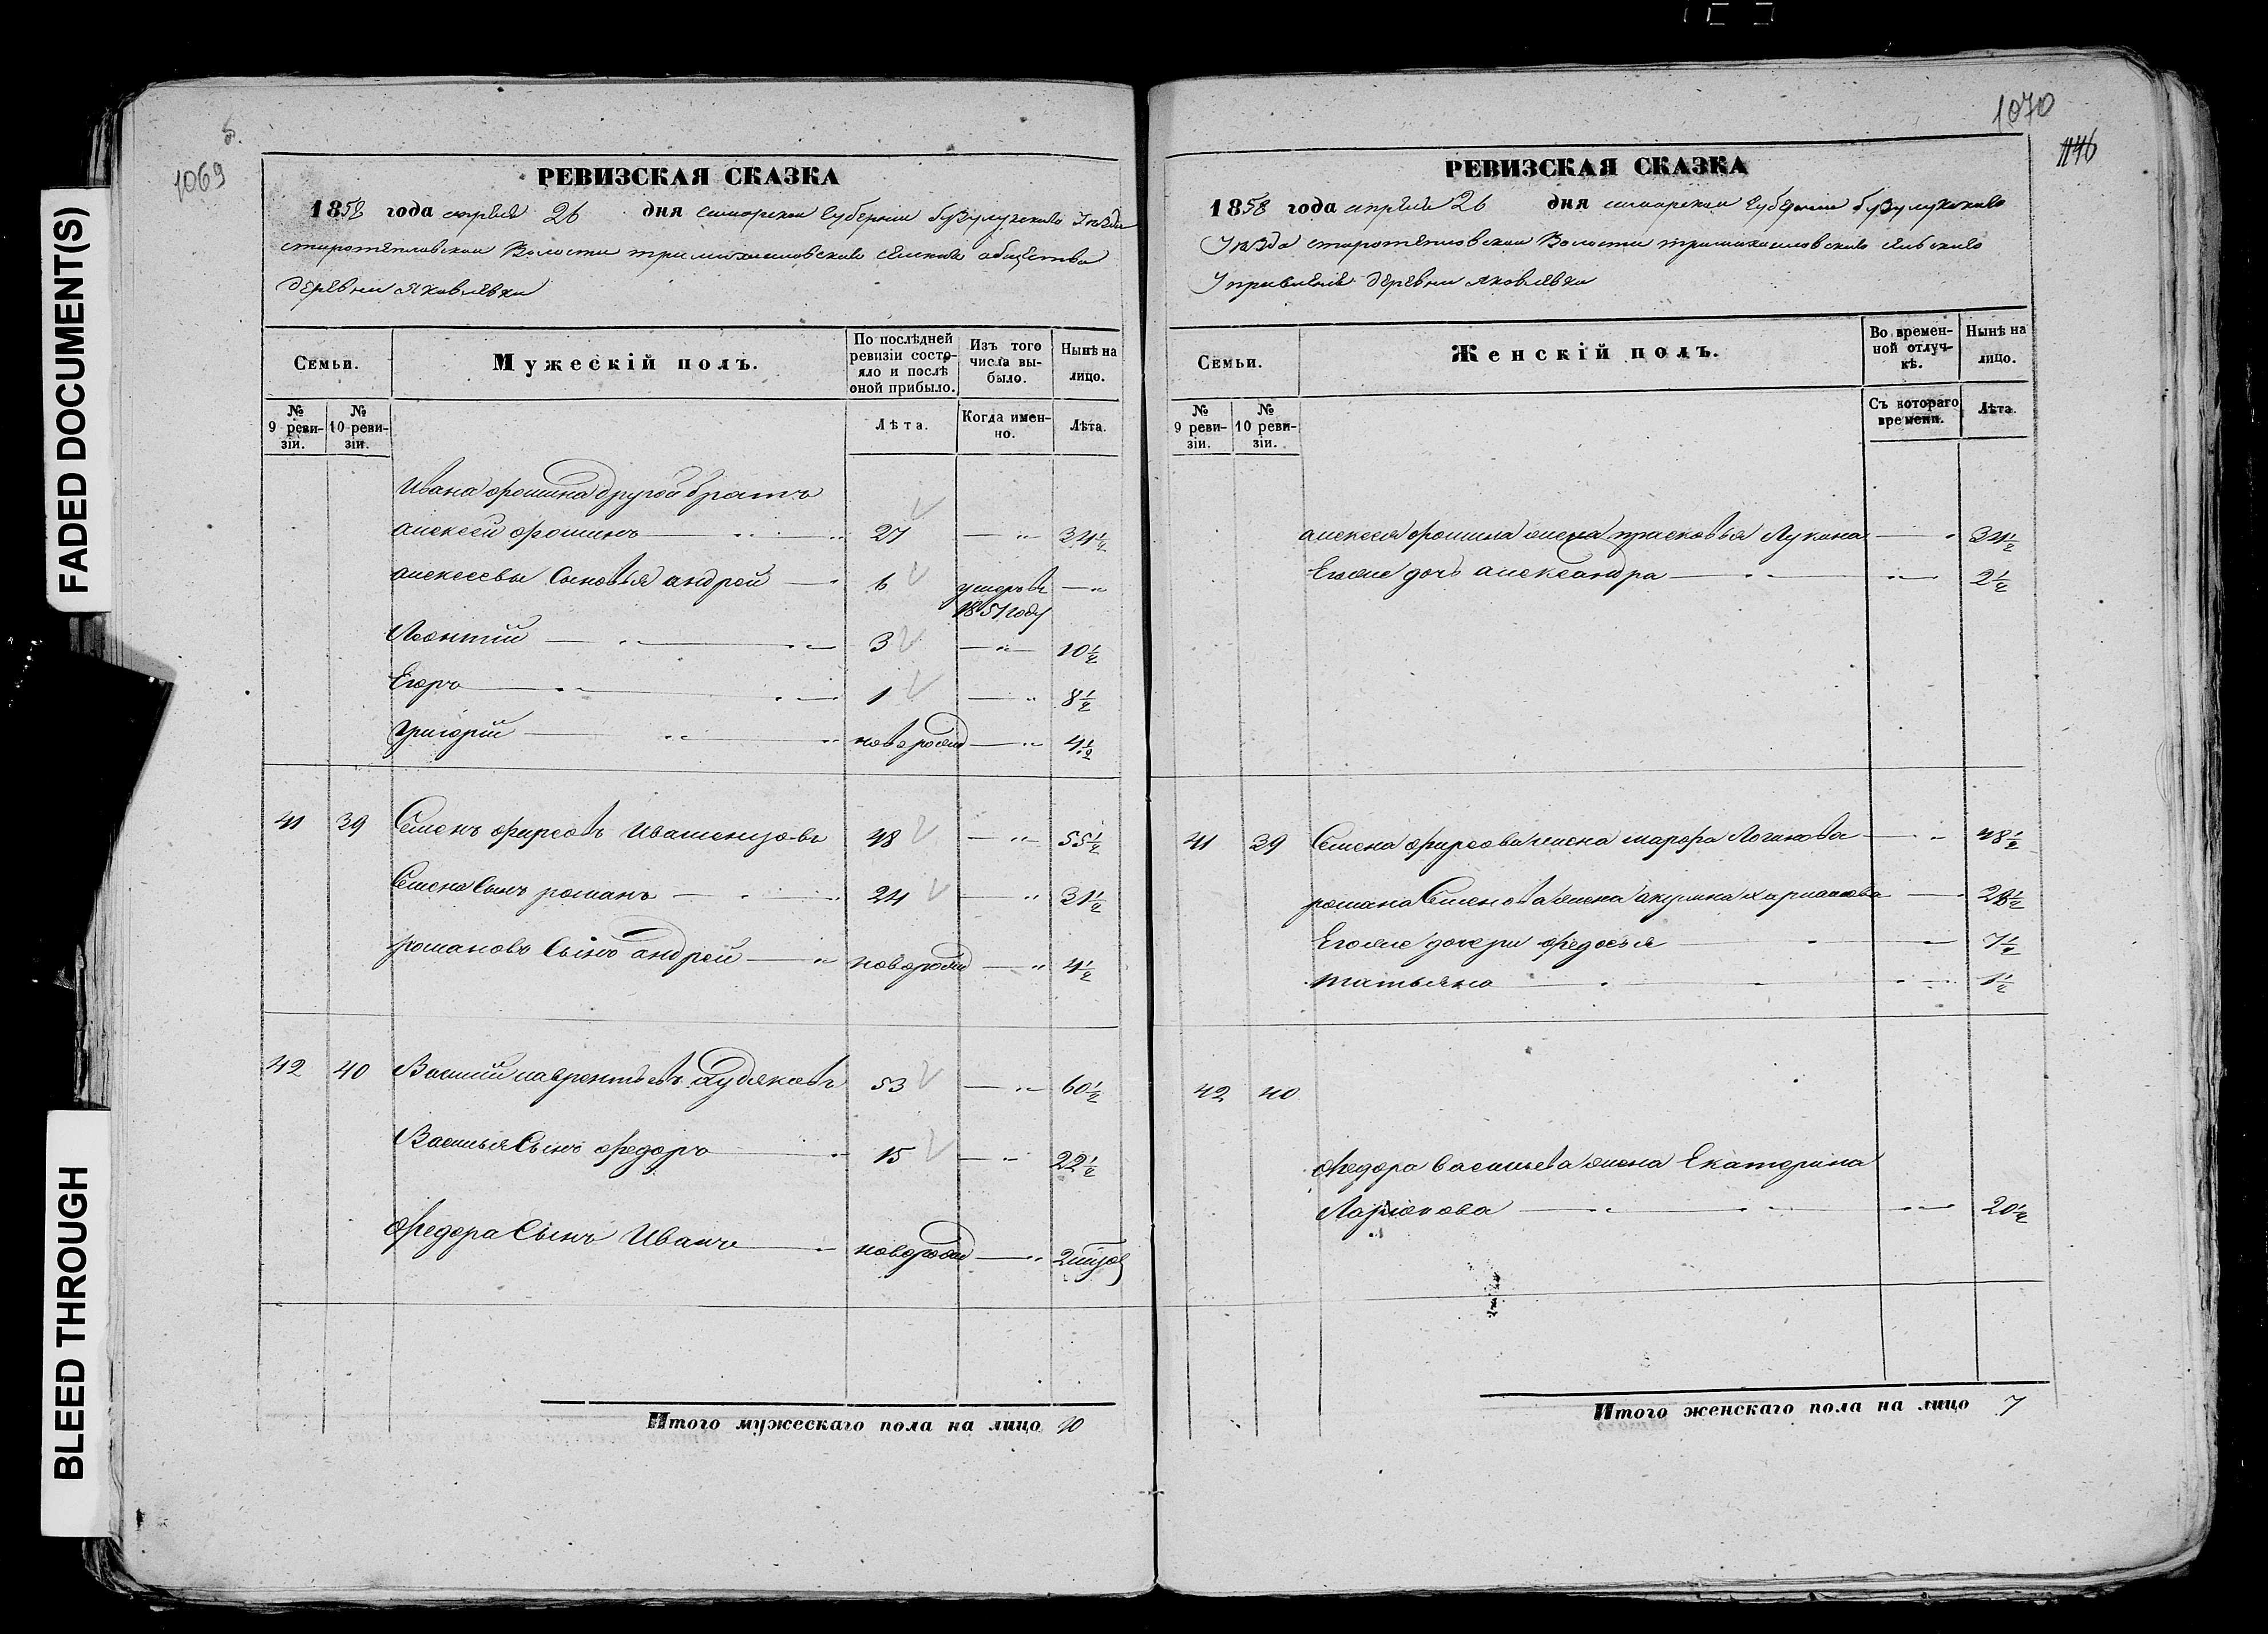 FADED DOCUMENT(S)
BLEED THROUGH
1069
РЕВИЗСКАЯ СКАЗКА
1858 года апреля 26 дня самарской губернии бузулукскаго Уезда
старотепловской Волости общества
деревни яковлевки
Семьи.
Мужескій полъ.
По послѣдней ревизіи состояло и послѣ оной прибыло.
Изъ того числа выбыло.
Нынѣ на лицо.
№ 9 ревизіи.
№ 10 ревизіи.
Лѣта.
Когда именно.
Лѣта.
Ивана фомина другой братъ
алексей фоминъ 27 — 34½
алексеевы Сыновья андрей 6 умеръ въ 1851 году —
Леонтій 3 — 10½
Егоръ 1 — 8½
григорій новорожд — 4½
41 39 Семенъ фирсовъ 48 — 55½
Семена Сынъ романъ 24 — 31½
романовъ Сынъ андрей новорожд — 4½
42 40 Василий лаврентьевъ Худяковъ 53 — 60½
Василья Сынъ федоръ 15 — 22½
федора Сынъ Иванъ новорожд —
Итого мужескаго пола на лицо 10
1070
РЕВИЗСКАЯ СКАЗКА
1858 года апреля 26 дня самарской губернии бузулукскаго
Уезда старотепловской Волости сельскаго
деревни яковлевки
Семьи.
Женскій полъ.
Во временной отлучкѣ.
Нынѣ на лицо.
№ 9 ревизіи.
№ 10 ревизіи.
Съ котораго времени.
Лѣта.
алексея фомина жена прасковья Лукина — 34½
Егоже дочь александра — 2½
41 39 Семена фирсова жена марфа Логинова — 48½
романа Семенова жена акулина — 28½
Егоже дочери федосья — 7½
татьяна — 1½
42 40
федора васильева жена Екатерина
Ларионова — 20½
Итого женскаго пола на лицо 7